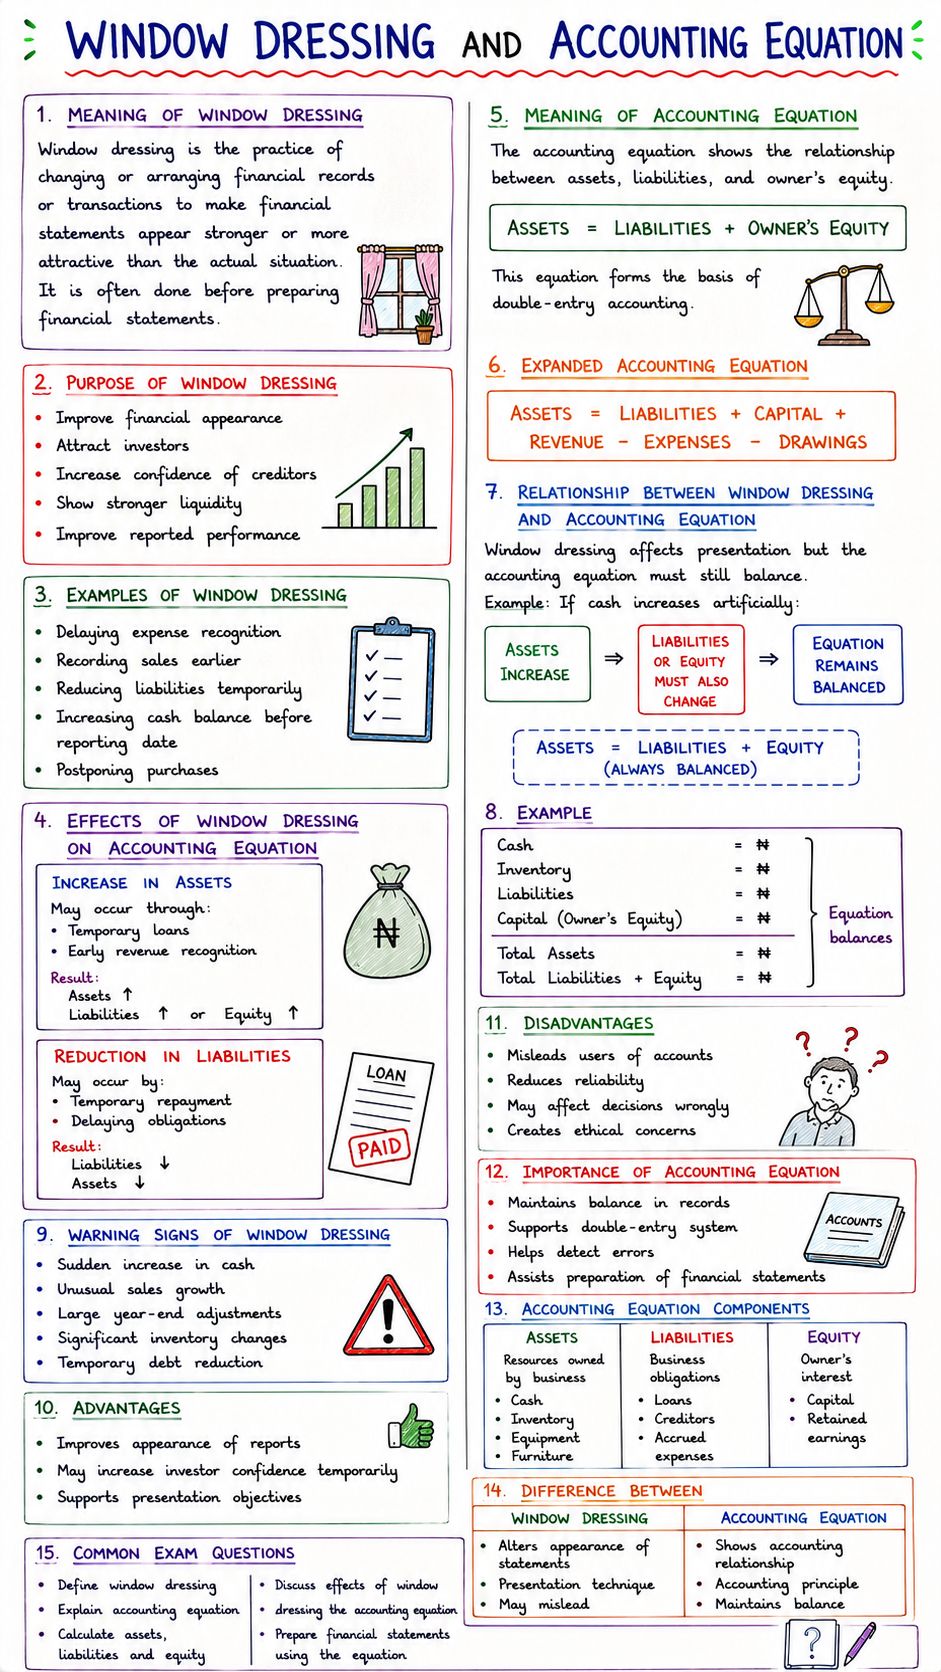 WINDOW DRESSING AND ACCOUNTING EQUATION
1. MEANING OF WINDOW DRESSING
Window dressing is the practice of
changing or arranging financial records
or transactions to make financial
statements appear stronger or more
attractive than the actual situation.
It is often done before preparing
financial statements.
2. PURPOSE OF WINDOW DRESSING
• Improve financial appearance
• Attract investors
• Increase confidence of creditors
• Show stronger liquidity
• Improve reported performance
3. EXAMPLES OF WINDOW DRESSING
• Delaying expense recognition
• Recording sales earlier
• Reducing liabilities temporarily
• Increasing cash balance before
reporting date
• Postponing purchases
4. EFFECTS OF WINDOW DRESSING
ON ACCOUNTING EQUATION
INCREASE IN ASSETS
May occur through:
• Temporary loans
• Early revenue recognition
Result:
Assets ↑
Liabilities ↑ or Equity ↑
₦
REDUCTION IN LIABILITIES
May occur by:
• Temporary repayment
• Delaying obligations
Result:
Liabilities ↓
Assets ↓
LOAN
PAID
5. MEANING OF ACCOUNTING EQUATION
The accounting equation shows the relationship
between assets, liabilities, and owner's equity.
ASSETS = LIABILITIES + OWNER'S EQUITY
This equation forms the basis of
double-entry accounting.
6. EXPANDED ACCOUNTING EQUATION
ASSETS = LIABILITIES + CAPITAL +
REVENUE − EXPENSES − DRAWINGS
7. RELATIONSHIP BETWEEN WINDOW DRESSING
AND ACCOUNTING EQUATION
Window dressing affects presentation but the
accounting equation must still balance.
Example: If cash increases artificially:
ASSETS
INCREASE
⇒
LIABILITIES
OR EQUITY
MUST ALSO
CHANGE
⇒
EQUATION
REMAINS
BALANCED
ASSETS = LIABILITIES + EQUITY
(ALWAYS BALANCED)
8. EXAMPLE
Cash = ₦
Inventory = ₦
Liabilities = ₦
Capital (Owner's Equity) = ₦
Total Assets = ₦
Total Liabilities + Equity = ₦
Equation
balances
9. WARNING SIGNS OF WINDOW DRESSING
• Sudden increase in cash
• Unusual sales growth
• Large year-end adjustments
• Significant inventory changes
• Temporary debt reduction
!
10. ADVANTAGES
• Improves appearance of reports
• May increase investor confidence temporarily
• Supports presentation objectives
11. DISADVANTAGES
• Misleads users of accounts
• Reduces reliability
• May affect decisions wrongly
• Creates ethical concerns
? ? ?
12. IMPORTANCE OF ACCOUNTING EQUATION
• Maintains balance in records
• Supports double-entry system
• Helps detect errors
• Assists preparation of financial statements
ACCOUNTS
13. ACCOUNTING EQUATION COMPONENTS
ASSETS
Resources owned
by business
• Cash
• Inventory
• Equipment
• Furniture
LIABILITIES
Business
obligations
• Loans
• Creditors
• Accrued
expenses
EQUITY
Owner's
interest
• Capital
• Retained
earnings
14. DIFFERENCE BETWEEN
WINDOW DRESSING
• Alters appearance of
statements
• Presentation technique
• May mislead
ACCOUNTING EQUATION
• Shows accounting
relationship
• Accounting principle
• Maintains balance
15. COMMON EXAM QUESTIONS
• Define window dressing
• Explain accounting equation
• Calculate assets,
liabilities and equity
• Discuss effects of window
• dressing the accounting equation
• Prepare financial statements
using the equation
?